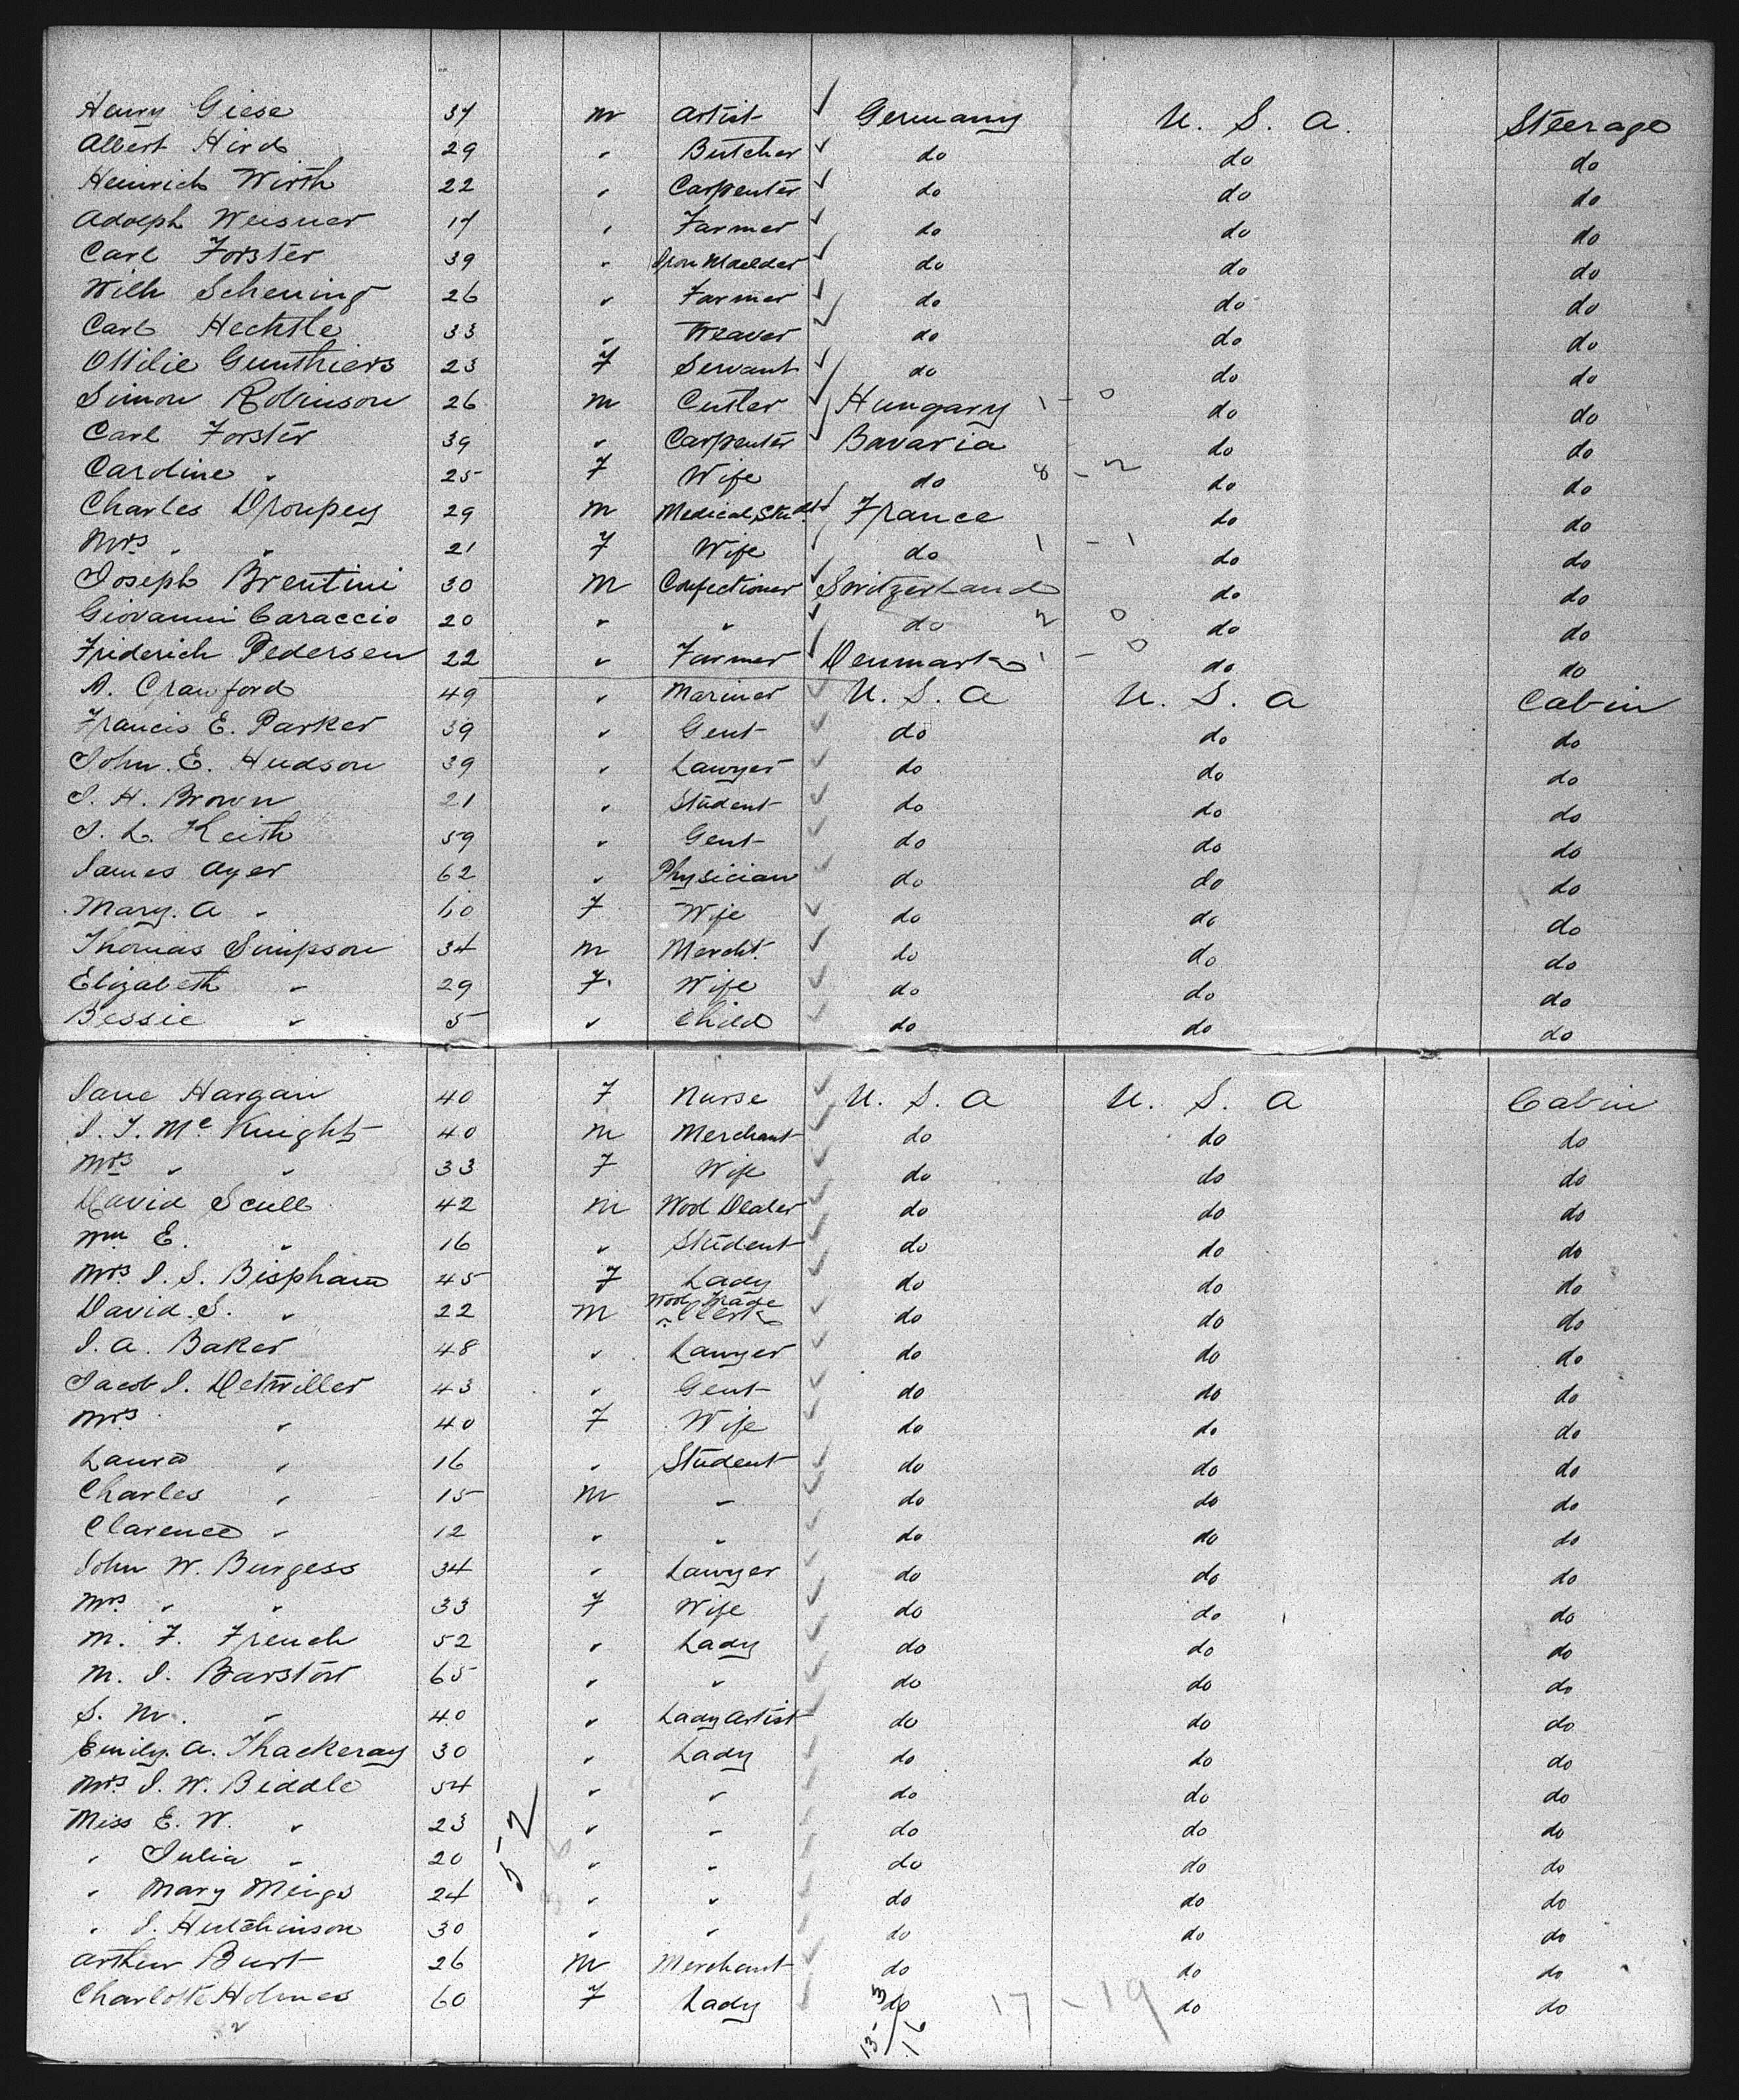 Henry Giese 37 m Artist Germany U. S. A. Steerage
Albert Hird 29 " Butcher do do do
Heinrich Wirth 22 " Carpenter do do do
Adolph Weisner 17 " Farmer do do do
Carl Forster 39 " Iron Moulder do do do
Wilh Schening 26 " Farmer do do do
Carl Hechtle 33 " Weaver do do do
Ottilie Gunthiers 23 F Servant do do do
Simon Robinson 26 m Cutler Hungary 1 - 0 do do
Carl Forster 39 " Carpenter Bavaria do do
Caroline " 25 F Wife do 8 - 2 do do
Charles 29 m Medical Studt France do do
Mrs " " 21 F Wife do 1 - 1 do do
Joseph Brentini 30 m Confectioner Switzerland do do
Giovanni Caraccio 20 " " do 2 0 do do
Friderich Pedersen 22 " Farmer Denmark 1 - 0 do do
A. Crawford 49 " Mariner U. S. A U. S. A Cabin
Francis E. Parker 39 " Gent do do do
John. E. Hudson 39 " Lawyer do do do
J. H. Brown 21 " Student do do do
J. L. Keith 59 " Gent do do do
James Ayer 62 " Physician do do do
Mary. A " 60 F Wife do do do
Thomas Simpson 34 m Mercht. do do do
Elizabeth " 29 F. Wife do do do
Bessie " 5 " Child do do do
Jane Hargain 40 F Nurse U. S. A U. S. A Cabin
J. T. Mc Knight 40 m Merchant do do do
Mrs " " 33 F Wife do do do
David Scull 42 m Wool Dealer do do do
Wm E. " 16 " Student do do do
Mrs J. S. Bispham 45 F Lady do do do
David. S. " 22 m Wool Trade Clerk do do do
J. A. Baker 48 " Lawyer do do do
Jacob J. Detwiller 43 " Gent do do do
Mrs " 40 F Wife do do do
Laura " 16 " Student do do do
Charles " 15 m " do do do
Clarence " 12 " " do do do
John W. Burgess 34 " Lawyer do do do
Mrs " " 33 F Wife do do do
M. F. French 52 " Lady do do do
M. J. Barstow 65 " " do do do
S. M. " 40 " Lady Artist do do do
Emily. A. Thackeray 30 " Lady do do do
Mrs J. W. Biddle 54 " " do do do
Miss E. W. " 23 " " do do do
" Julia " 20 " " do do do
" Mary Meigs 24 " " do do do
" J. Hutchinson 30 " " do do do
Arthur Burt 26 m Merchant do do do
Charlotte Holmes 60 F Lady do do do
52
17 - 19
13 - 16